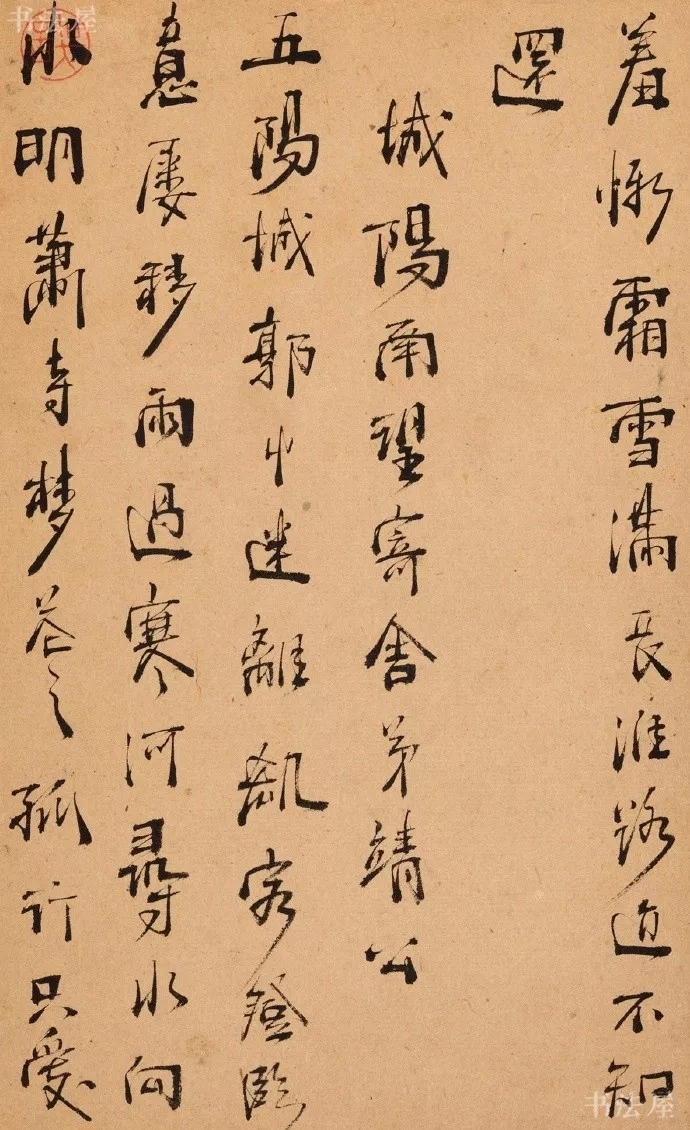 羞慚霜雪滿長淮路迫不知
還
城陽南望寄舍弟靖公
五陽城郭迷離飢客登臨
意屢移雨過寒河尋水向
冰明蕭寺夢之孤行只愛
书法屋
书法屋